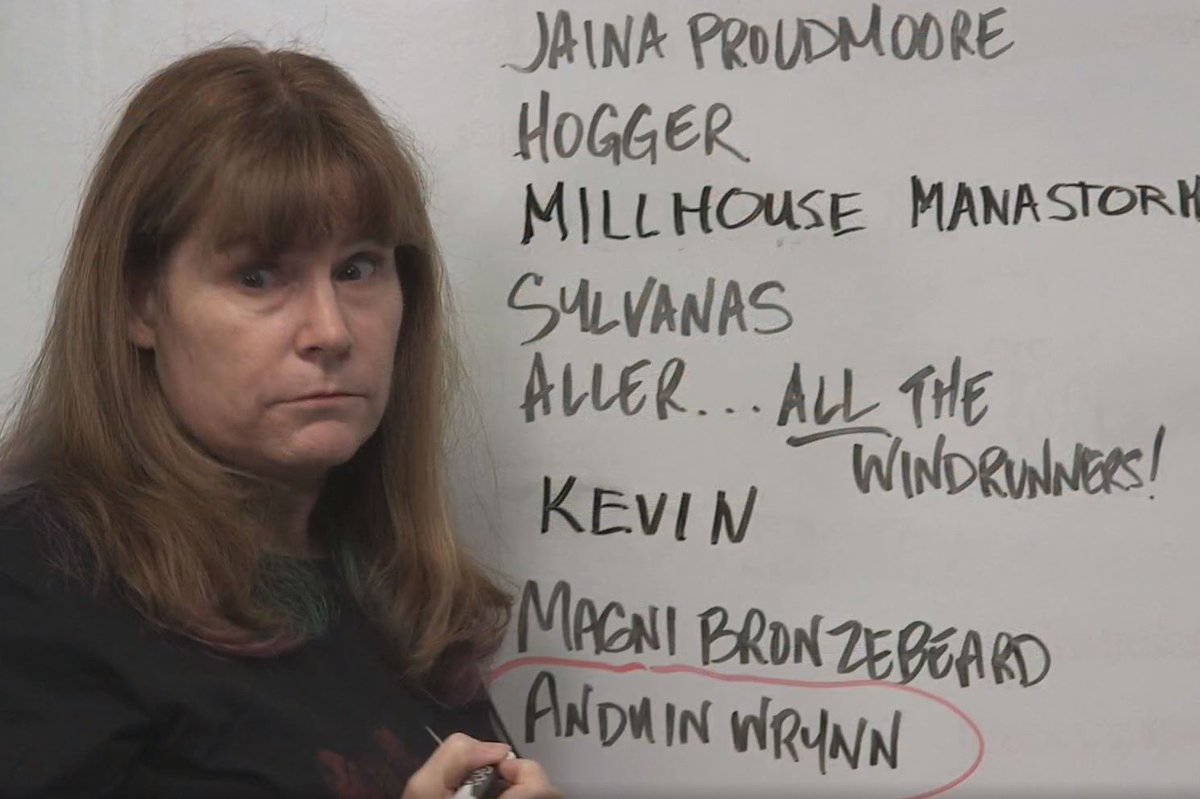 JAINA PROUDMOORE
HOGGER
MILLHOUSE MANASTORM
SYLVANAS
ALLER... ALL THE
WINDRUNNERS!
KEVIN
MAGNI BRONZEBEARD
ANDUIN WRYNN